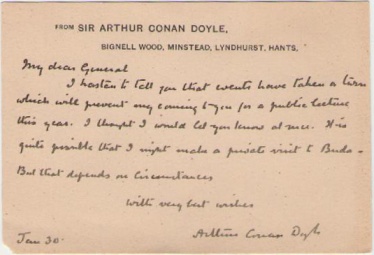 FROM SIR ARTHUR CONAN DOYLE,
BIGNELL WOOD, MINSTEAD, LYNDHURST, HANTS.
My dear General
I hasten to tell you that events have taken a turn
which will prevent my coming to you for a public lecture
this year. I thought I would let you know at once. It is
quite possible that I might make a private visit to Buda-
But that depends on Circumstances
With very best wishes
Jan 30.
Arthur Conan Doyle